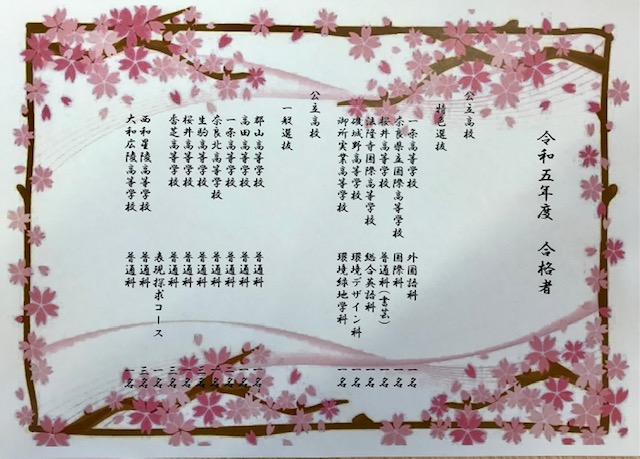 令和五年度 合格者
公立高校
特色選抜
一条高等学校 外国語科 一名
奈良県立国際高等学校 国際科 一名
桜井高等学校 普通科(書芸) 一名
法隆寺国際高等学校 総合英語科 一名
磯城野高等学校 環境デザイン科 一名
御所実業高等学校 環境緑地学科 一名
公立高校
一般選抜
郡山高等学校 普通科 一名
高田高等学校 普通科 一名
一条高等学校 普通科 二名
奈良北高等学校 普通科 一名
生駒高等学校 普通科 三名
桜井高等学校 普通科 一名
香芝高等学校 普通科 三名
表現探求コース 一名
西和星陵高等学校 普通科 三名
大和広陵高等学校 普通科 一名